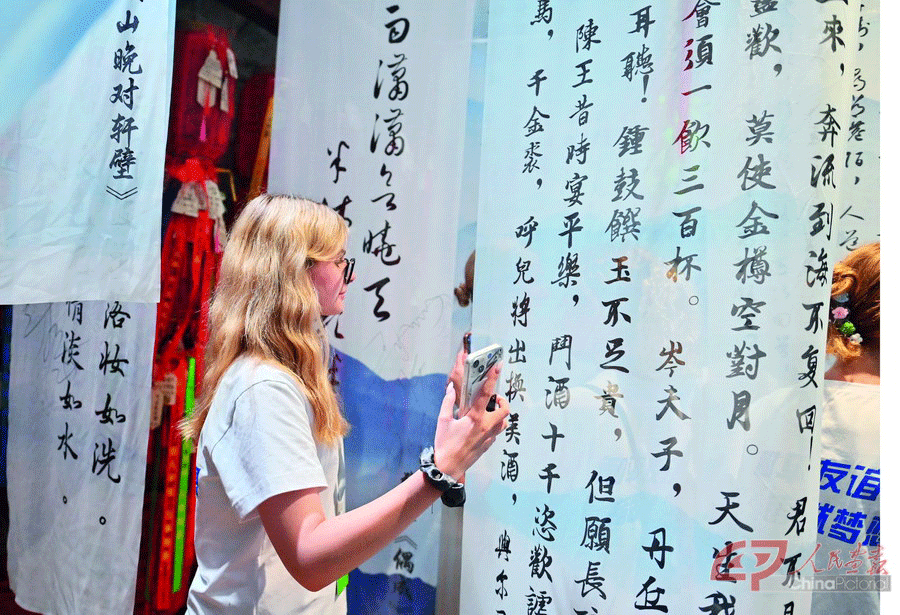 來,奔流到海不复回!君不
盡歡,莫使金樽空對月。天生我
會須一飲三百杯。岑夫子,丹丘
耳聽!鍾鼓饌玉不足貴,但願長
陳王昔時宴平樂,鬥酒十千恣歡謔
馬,千金裘,呼兒將出換美酒,與尔
瀟瀟兮曉天
《偶成
山晚对轩壁》
洛妆如洗。
情淡如水。
友谊
梦
人民画报
ChinaPictorial